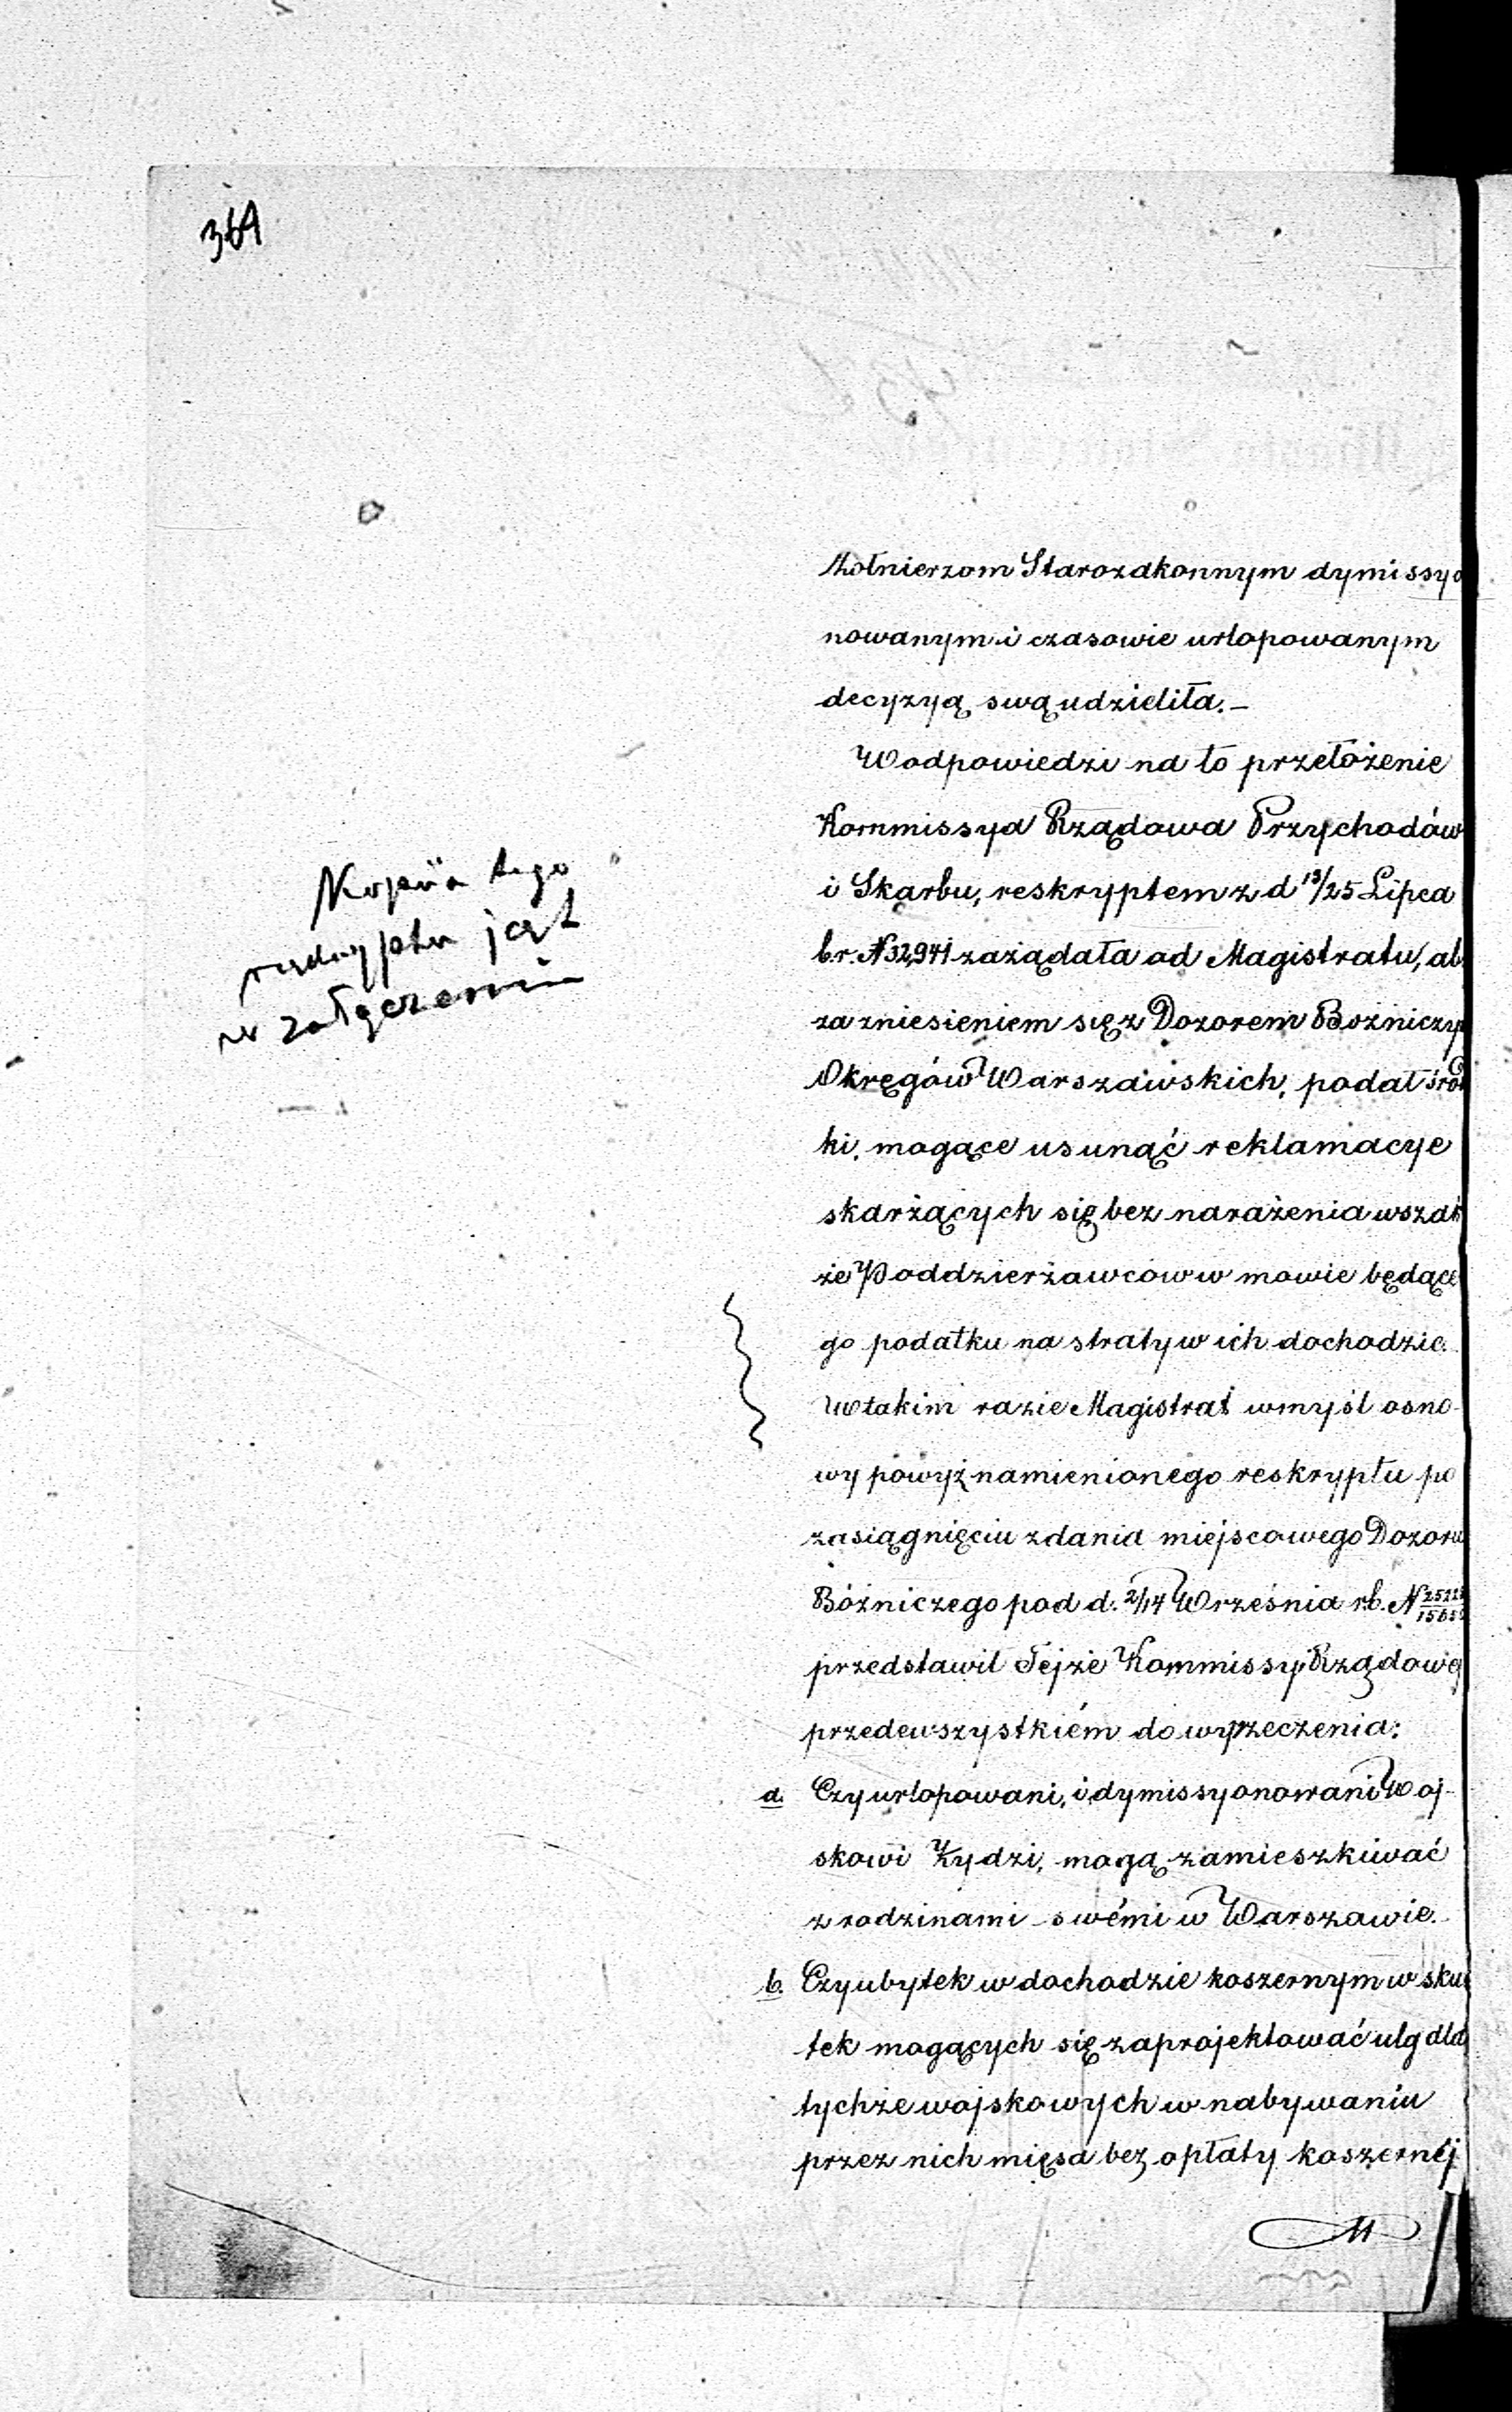 364
Żołnierzom Starozakonnym dymissyo
nowanym i czasowie urlopowanym
decyzyą swą udzieliła.—
W odpowiedzi na to przełożenie
Kommissya Rządowa Przychodów
i Skarbu, reskryptem z d 13/25 Lipca
b.r. N 32,941 zażądała od Magistratu, ab
za zniesieniem się z Dozorem Bożniczy
Okręgów Warszawskich, podał środ
ki, mogące usunąć reklamacye
skarżących się bez narażenia wszak
że Poddzierżawców w mowie będące
go podatku na straty w ich dochodzie.
W takim razie Magistrat w myśl osno-
wy powyż namienionego reskryptu po
zasiągnięciu zdania miejscowego Dozoru
Bóżniczego pod d. 2/14 Września rb. N
przedstawił Tejże Kommissyi Rządowej
przedewszystkiém do wyrzeczenia:
a. Czy urlopowani, i dymissyonowani Woj-
skowi Żydzi, mogą zamieszkiwać
z rodzinami swémi w Warszawie.
b. Czy ubytek w dochodzie koszernym w sku
tek mogących się zaprojektować ulg dla
tychże wojskowych w nabywaniu
przez nich mięsa bez opłaty koszernéj
Kopiia tego
jest
w załączeniu